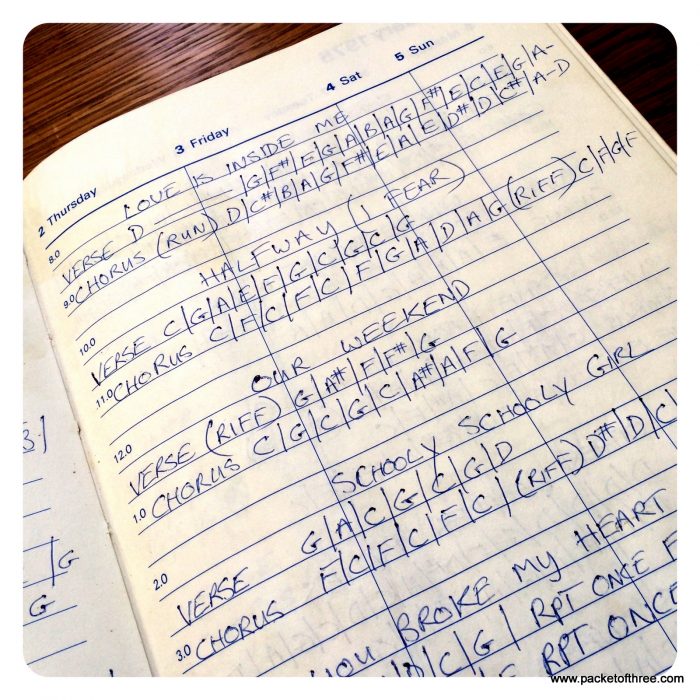 2 Thursday 3 Friday 4 Sat 5 Sun
LOVE IS INSIDE ME
8.0
VERSE D G|F#|F|G|A|B|A|G|F#|E|C|E|G|A-
CHORUS (RUN) D|C#|B|A|G|F#|E|A|E|D#|D|C#|A-D
9.0
HALFWAY (I FEAR)
10.0
VERSE C|G|A|E|F|G|C|G|C|G
CHORUS C|F|C|F|C|F|G|A|D|A|G (RIFF) C|F|G|F
11.0
OUR WEEKEND
12.0
VERSE (RIFF) G|A#|F|F#|G
CHORUS C|G|C|G|C|A#|A|F|G
1.0
SCHOOLY SCHOOLY GIRL
2.0
VERSE G|A|C|G|C|G|D
CHORUS F|C|F|C|F|C|(RIFF) D#|D|C
3.0
YOU BROKE MY HEART
D|C|G| RPT ONCE F
RPT ONCE
G
G
www.packetofthree.com